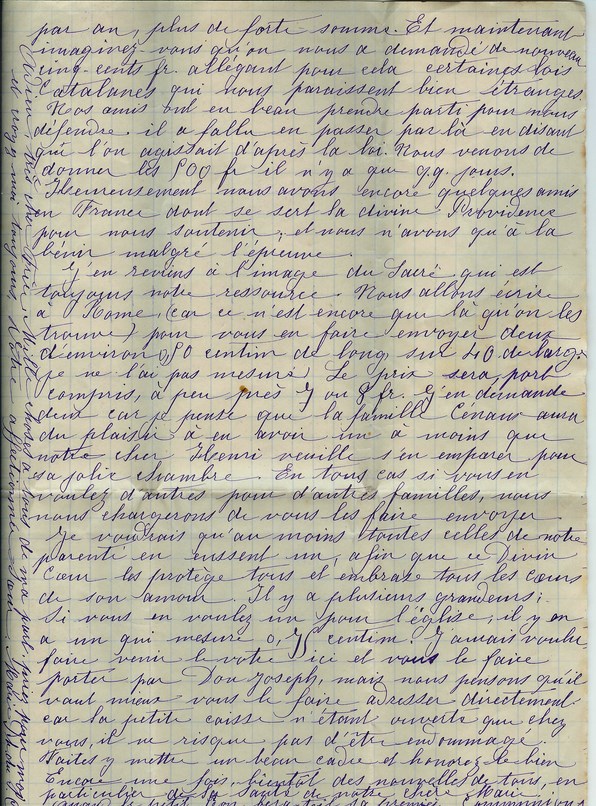 par an, plus de forte somme. Et maintenant
imaginez-vous qu'on nous a demandé de nouveau
cinq-cents fr. allégant pour cela certaines lois
Catalanes qui nous paraissent bien étranges.
Nos amis ont eu beau prendre parti pour nous
défendre. il a fallu en passer par là en disant
qu'l'on agissait d'après la loi. Nous venons de
donner les 500 fr il n'y a que q.q. jours.
Heureusement nous avons encore quelques amis
en France dont se sert la divine Providence
pour nous soutenir; et nous n'avons qu'à la
bénir malgré l'épreuve.
J'en reviens à l'image du Sacré qui est
toujours notre ressource. Nous allons écrire
à Rome, (car ce n'est encore que là qu'on les
trouve) pour vous en faire envoyer deux
d'environ 0,50 centim de long, sur 40 de large
je ne l'ai pas mesuré. Le prix sera, port
compris, à peu près 7 ou 8 fr. J'en demande
deux car je pense que la famille aura
du plaisir à en avoir un à moins que
notre cher Henri veuille s'en emparer pour
sa jolie chambre. En tous cas si vous en
voulez d'autres pour d'autres familles, nous
nous chargerons de vous les faire envoyer
Je voudrais qu'au moins toutes celles de notre
parenté en eussent un, afin que ce Divin
Cœur les protège tous et embrase tous les cœurs
de son amour. Il y a plusieurs grandeurs;
Si vous en voulez un pour l'église, il y en
a un qui mesure 0,75 centim. J'aurais voulu
faire venir le votre ici et vous le faire
porter par Don Joseph, mais nous pensons qu'il
vaut mieux vous le faire adresser directement
car la petite caisse n'étant ouverte que chez
vous, il ne risque pas d'être endommagé.
Faites y mettre un beau cadre et honorez-le bien
Encore une fois, bientôt des nouvelles de tous, en
particulier de la santé de notre chère Marie.
Quand le petit fera-t-il sa première communion
Adieu très cher Mille choses à tous de ma part, priez pour moi
et croyez moi toujours Votre affectionnée Sœur Marie